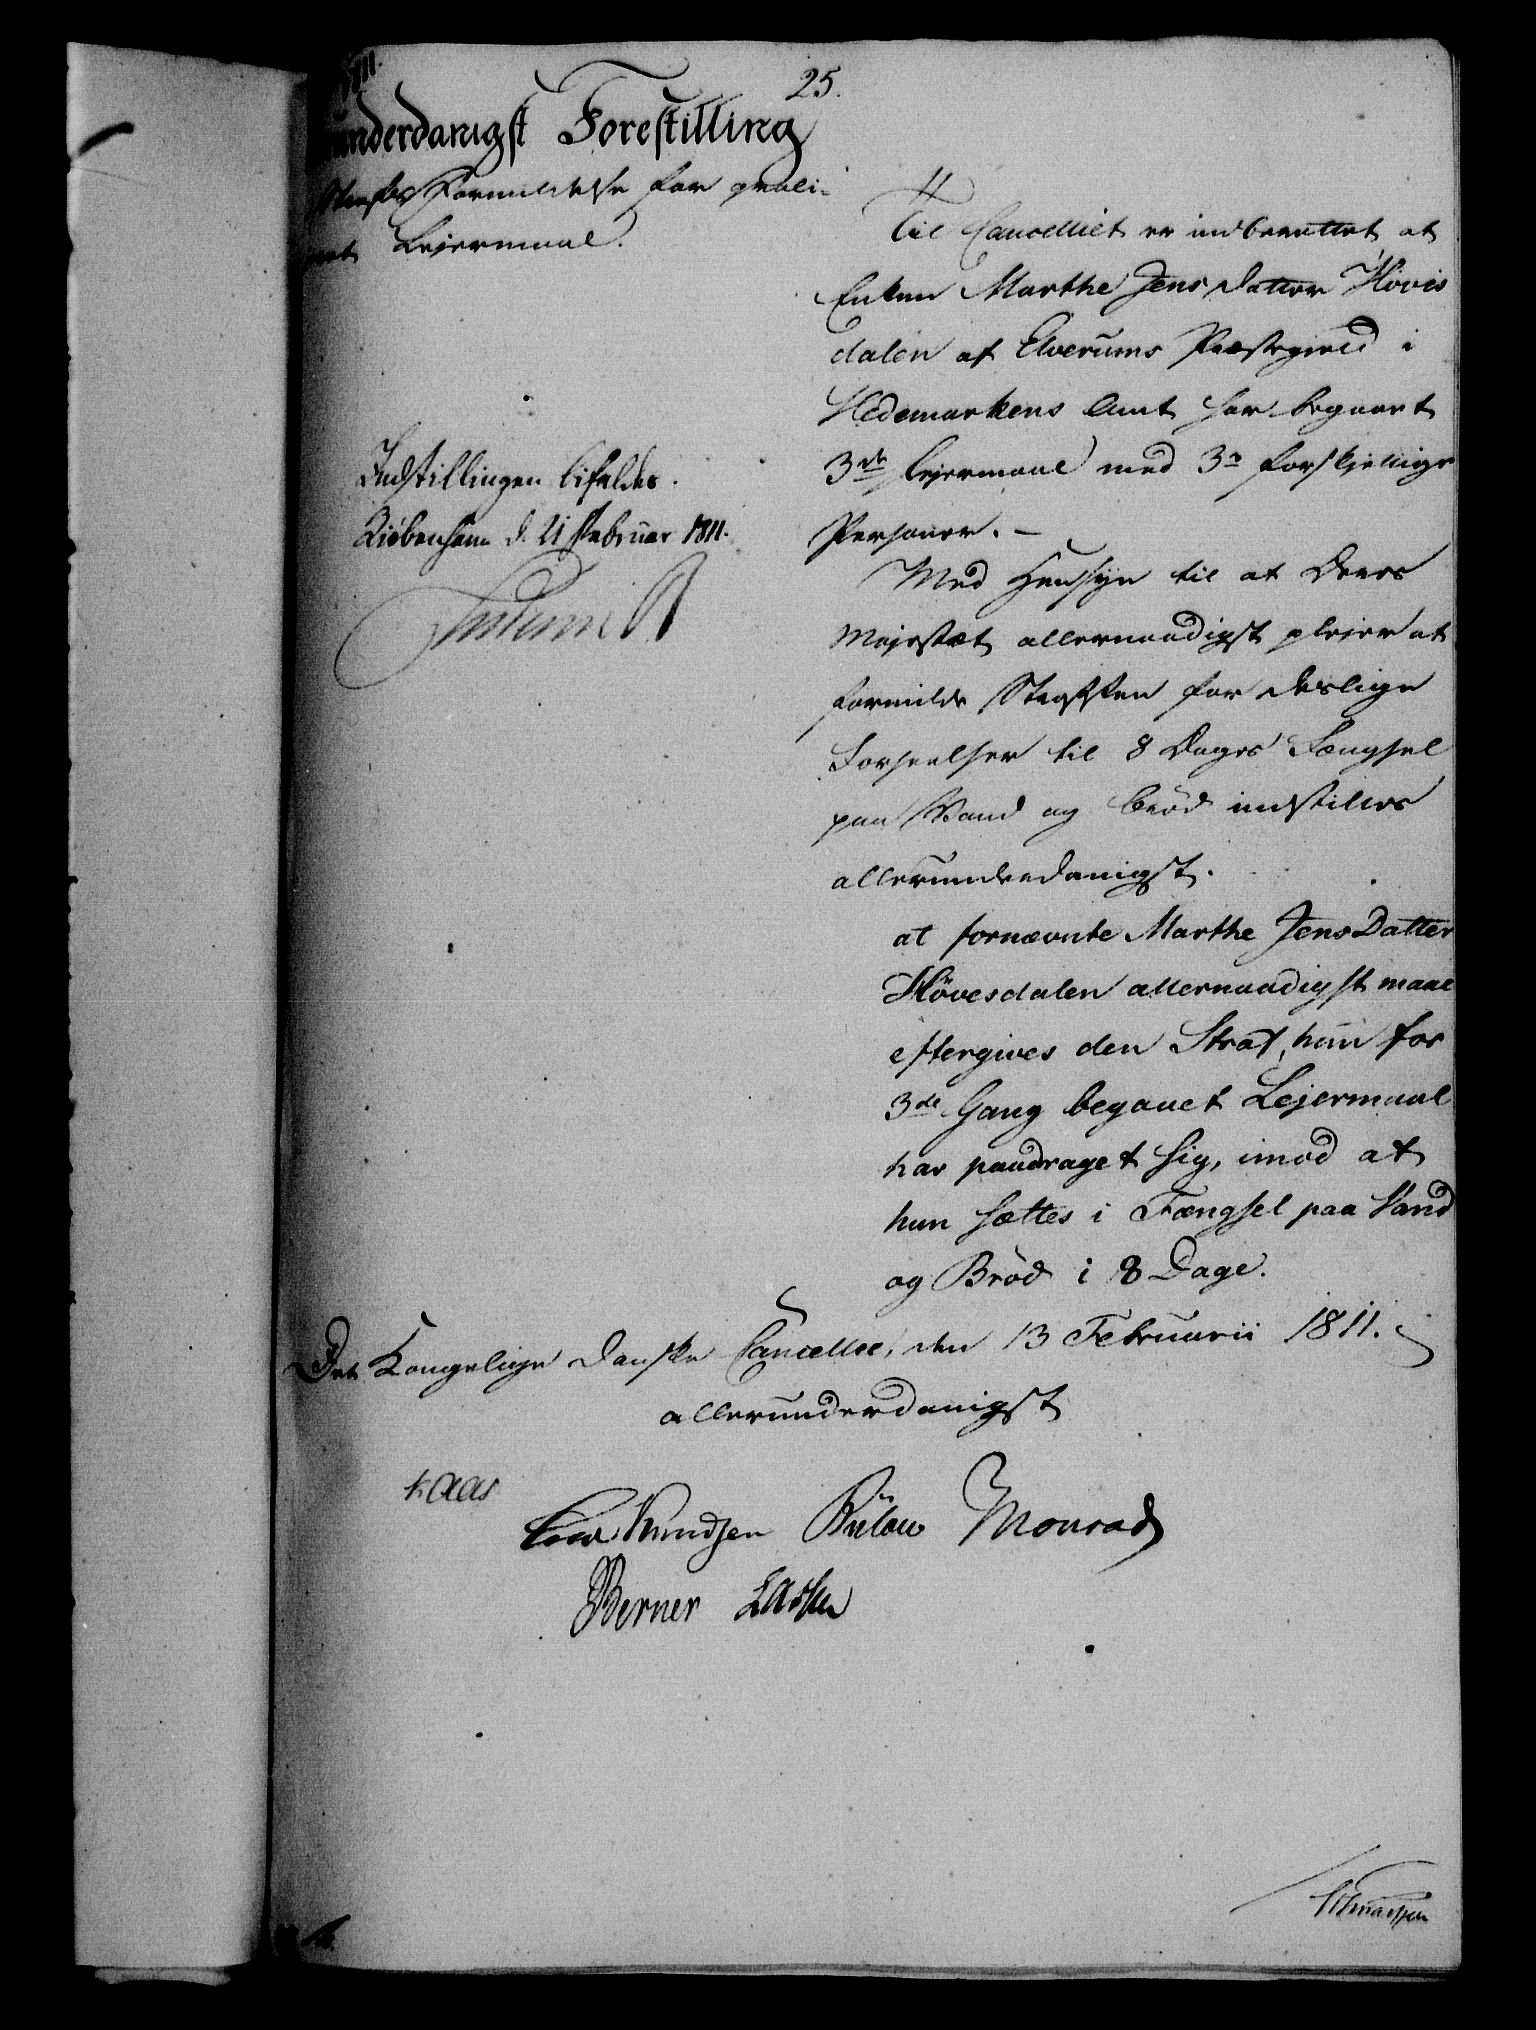 25.
underdanigst Forestilling
Straffes Formildelse for qvali-
Lejermaal.
Til Cancelliet er indberettet, at
Enken Marthe Jens datter Hövis
dalen af Elverums Præstegield i
Hedemarkens Amt har begaaet
3de Lejermaal med 3e forskjellige
Personer. –
Med Hensyn til at Deres
Majestæt allernaadigst plejer at
formilde Straffen for deslige
Forseelser til 8 Dages Fængsel
paa Vand og Bröd indstilles
allerunderdanigst.
at fornævnte Marthe Jens Datter
Hövesdalen allernaadigst maae
eftergives den Straf, hun for
3de Gang begaaet Lejermaal
har paadraget sig, imod at
hun sættes i Fængsel paa Vand
og Bröd i 8 Dage.
Indstillingen bifaldes.
Kiöbenhavn d. 21 Februar 1811.
Frederik R
Det Kongelige danske Cancellie, den 13 Februarii 1811.
allerunderdanigst
Kaas
Knudsen Bülow Monrad
Berner Lassen